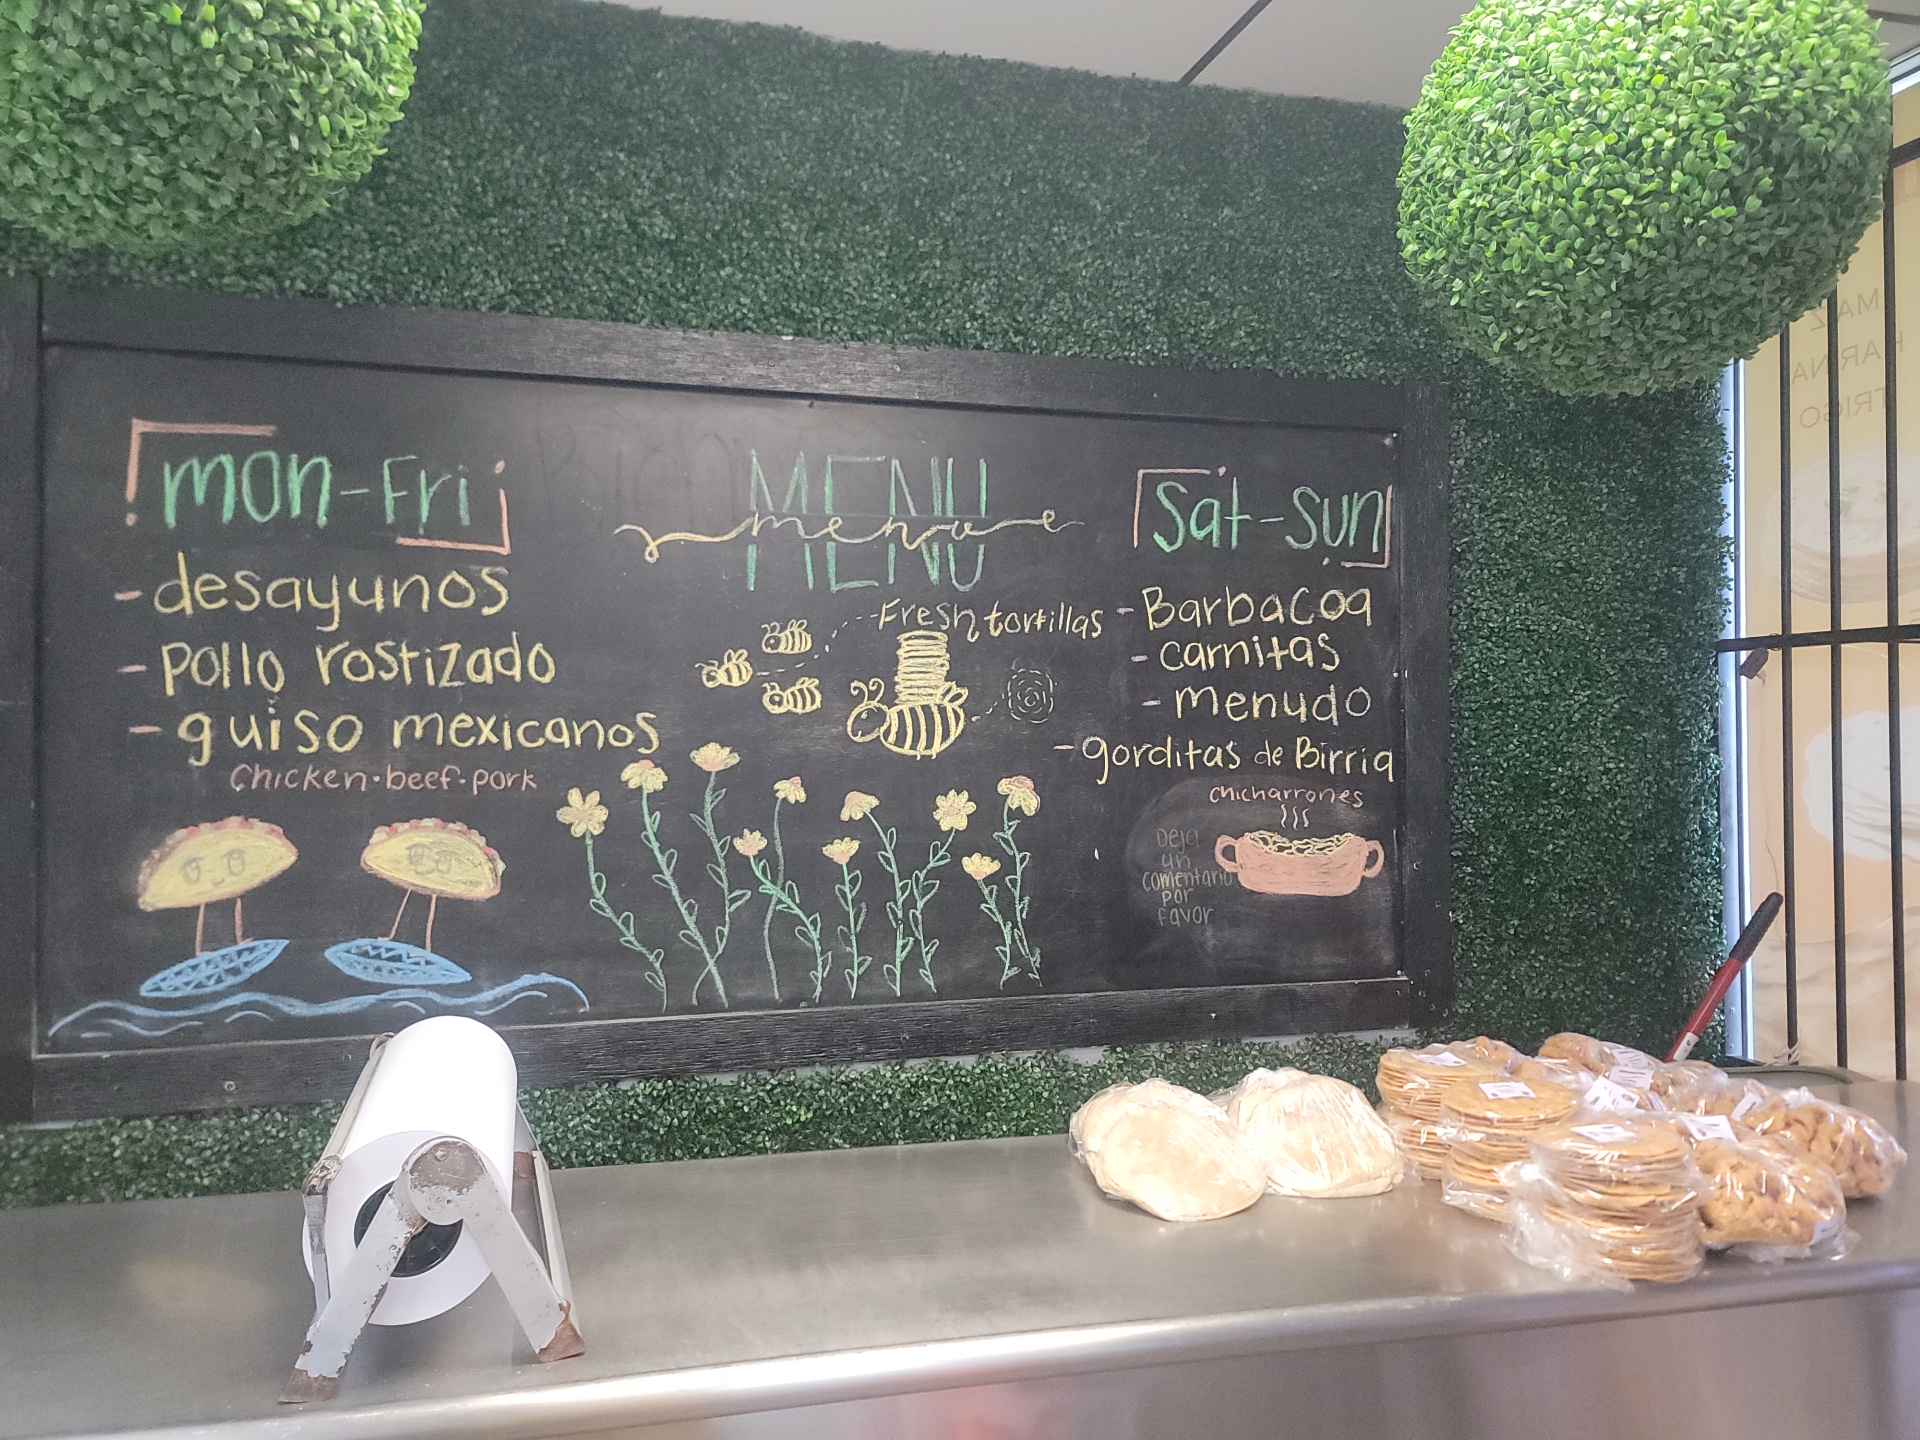 mon-Fri
- desayunos
- pollo rostizado
- guiso mexicanos
chicken·beef·pork
MENU
menu
Fresh tortillas
Sat-Sun
- Barbacoa
- carnitas
- menudo
- gorditas de Birria
chicharrones
Deja
un
comentario
por
favor
MAIZ
HARINA
TRIGO